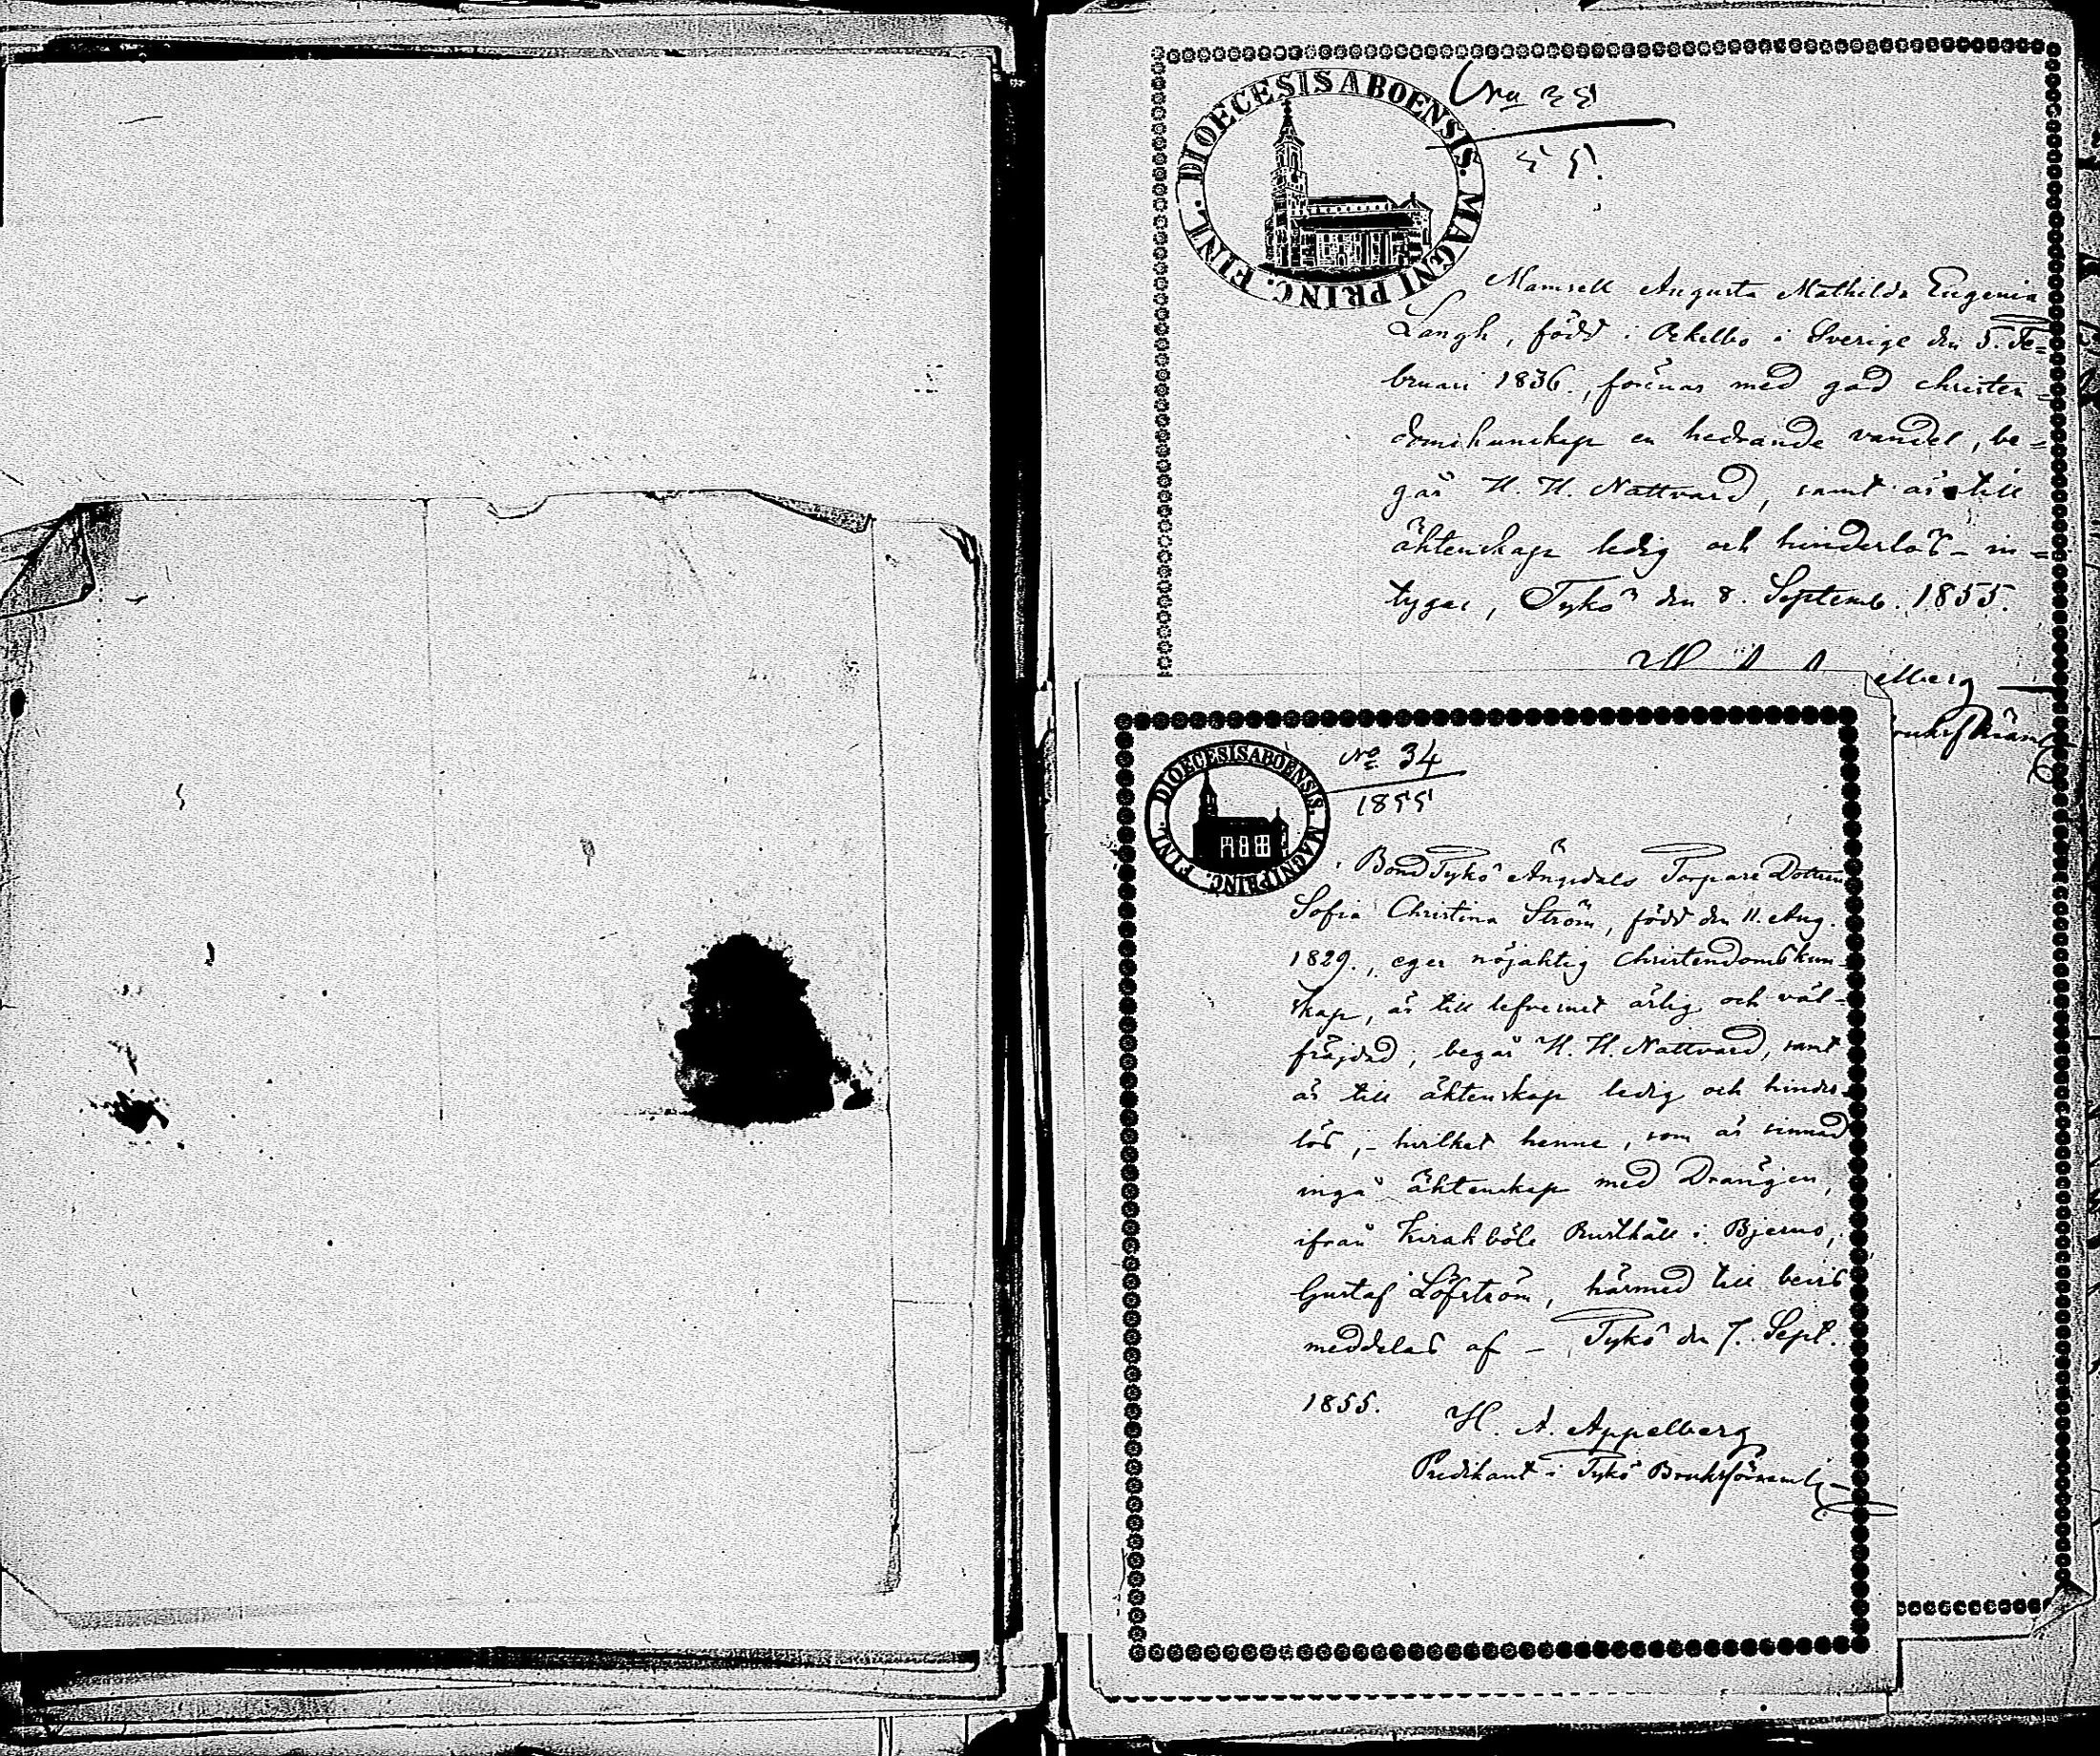 DIOECESIS ABOENSIS. MAGNI PRINC. FINL.
No 35
55.
Mamsell Augusta Mathilda Eugenia
Langh, född i Ockelbo i Sverige den 5. Fe=
bruari 1836., förenar med god christen=
domskunskap en hedrande vandel, be=
går H. H. Nattvard, samt är till
äktenskap ledig och hinderlös – in=
tygar, Tykö den 8. Septemb. 1855.
elberg
DIOECESIS ABOENSIS. MAGNI PRINC. FINL.
No 34
1855
Bond Tykö Ängsdals Torpare Dottren
Sofia Christina Ström, född den 11. Aug.
1829., eger nöjaktig Christendomskun-
skap, är till lefvernet ärlig och väl-
fräjdad, begår H. H. Nattvard, samt
är till äktenskap ledig och hinder-
lös, – hvilket henne, som är sinnad
ingå äktenskap med Drängen,
ifrån Kirakböle Rusthåll i Bjerno,
Gustaf Löfström, härmed till bevis
meddelas af – Tykö den 7. Sept.
1855.
H. A. Appelberg
Predikant i Tykö Bruksförsamlg